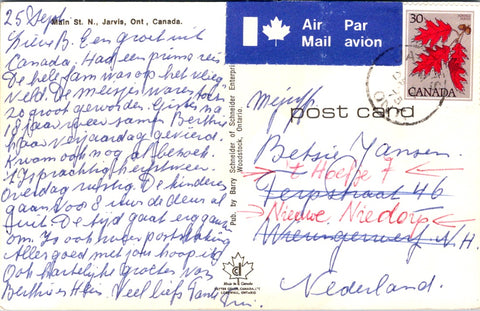 25 Sept
Main St. N., Jarvis, Ont, Canada.
Lieve B. Een groet uit
Canada, Had een prima reis
De hele fam was op het vlieg-
veld. De meisjes waren toch
zo groot geworden. Gister na
18 jaar weer samen Berthie's
haar verjaardag gevierd.
Kwam ook nog al bezoek.
't Is prachtig herfstweer.
Overdag rustig. De kinderen
gaan voor 8 uur de deur al
uit. De tijd gaat erg gauw
om. Is ook weer post staking
Alles goed met jou hoop ik
Ook hartelijke groeten van
Berthie & Hein. Veel liefs Tante
Pub. by Barry Schneider of Schneider Enterprises
Woodstock, Ontario.
Made in Canada
Air Par
Mail avion
30
CANADA
Mejuff
post card
Betsie Jansen
't Hoefje 7
Terpstraat 46
Nieuwe Niedorp
Wieringerwerf N.H.
Nederland.